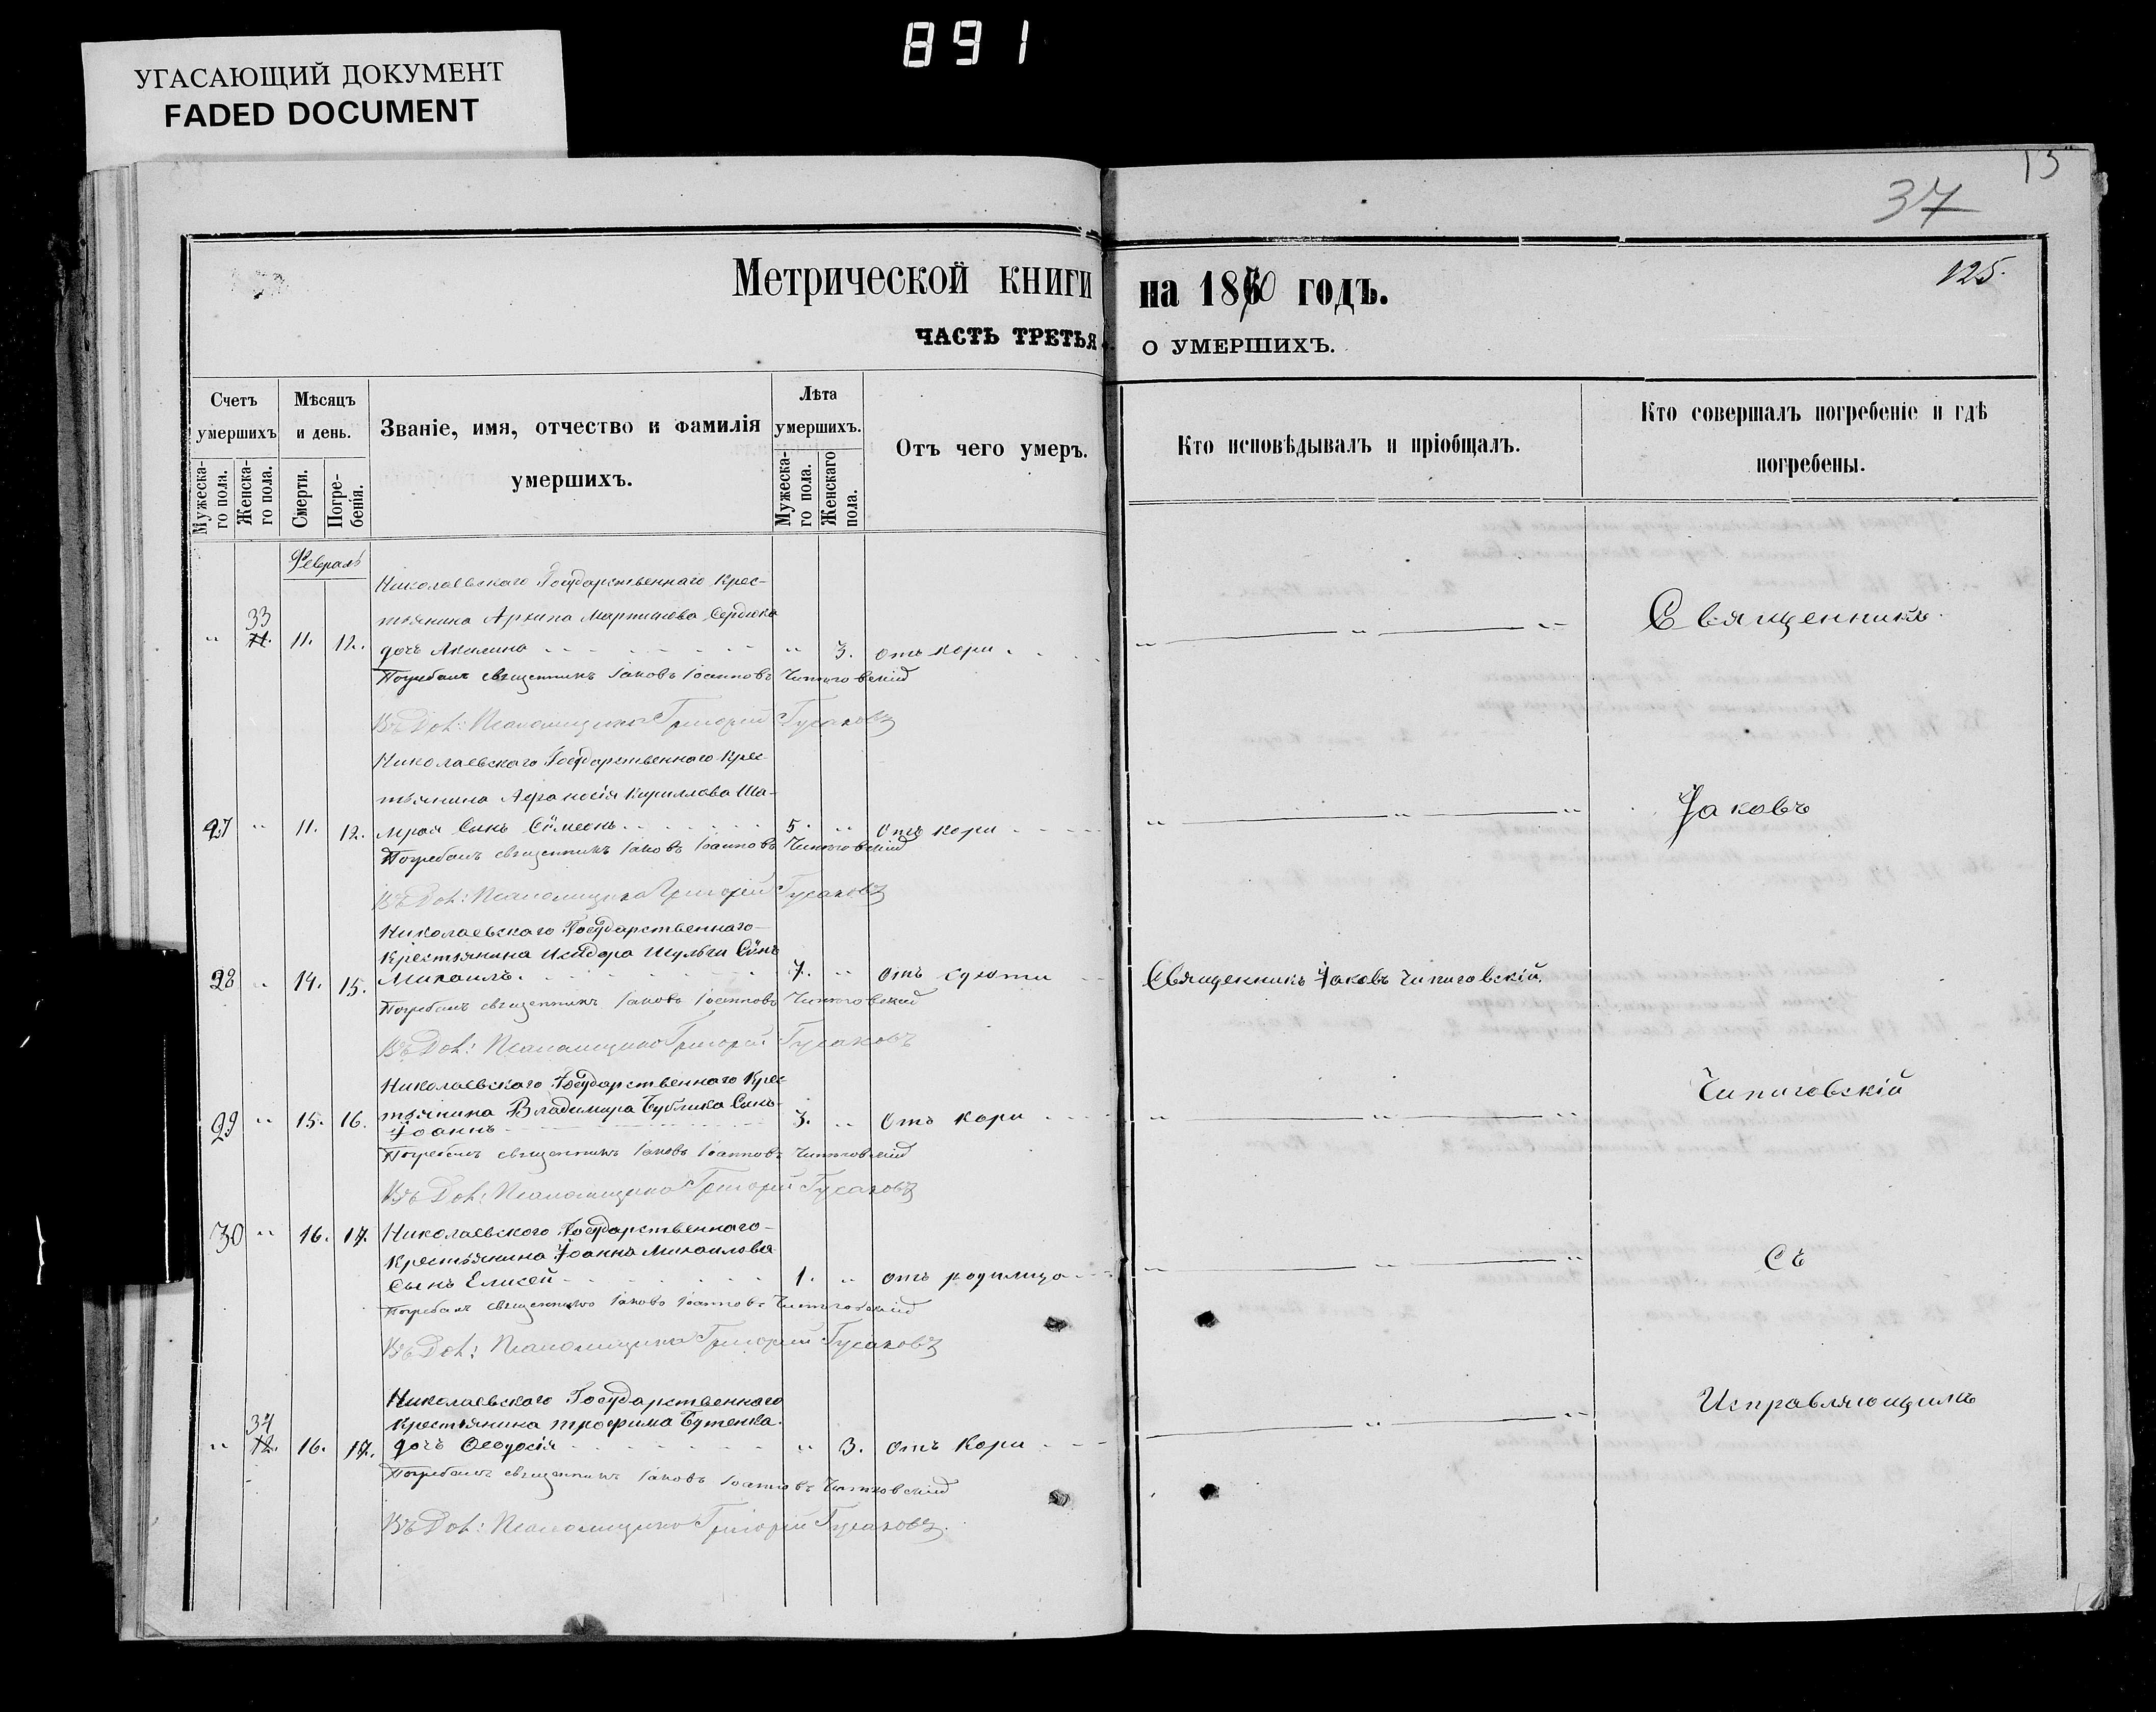 891
УГАСАЮЩИЙ ДОКУМЕНТ
FADED DOCUMENT
37
13
125.
Метрической книги на 1870 годъ.
ЧАСТЬ ТРЕТЬЯ. О УМЕРШИХЪ.
Счетъ умершихъ
Мужеска-го пола.
Женска-го пола.
Мѣсяцъ и день.
Смерти.
Погре-бенія.
Званіе, имя, отчество и фамилія умершихъ.
Лѣта умершихъ.
Мужеска-го пола.
Женскаго пола.
Отъ чего умеръ.
Кто исповѣдывалъ и пріобщалъ.
Кто совершалъ погребеніе и гдѣ погребены.
Февраль
Николаевскаго Государственнаго крес-
тьянина Архипа Мартинова Сердюка
33 11. 12. дочь Акилина 3. отъ кори
Погребалъ священникъ Іаковъ Іоанновъ Чипиговскій
Въ Дол: Псаломщика Григорій Гусаковъ
Николаевскаго Государственнаго крес-
тьянина Афанасія Кириллова Ша-
27 11. 12. мрая Сынъ Сѵмеонъ 5. Отъ кори
Погребалъ священникъ Іаковъ Іоанновъ Чипиговскій
Въ Дол: Псаломщика Григорій Гусаковъ
Николаевскаго Государственнаго
Крестьянина Исидора Шульги Сынъ
28 14. 15. Михаилъ. 7. отъ сухоти Священникъ Іаковъ Чипиговскій.
Погребалъ священникъ Іаковъ Іоанновъ Чипиговскій
Въ Дол: Псаломщика Григорій Гусаковъ
Николаевскаго Государственнаго Крес-
29 15. 16. тьянина Владимира Бублика Сынъ
Іоаннъ 3. Отъ кори
Погребалъ священникъ Іаковъ Іоанновъ Чипиговскій
Въ Дол: Псаломщика Григорій Гусаковъ
30 16. 17. Николаевскаго Государственнаго
Крестьянина Іоанна Михаилова
Сынъ Елисей 1. отъ родимца
Погребалъ священникъ Іаковъ Іоанновъ Чипиговскій
Въ Дол: Псаломщика Григорій Гусаковъ
Николаевскаго Государственнаго
34 Крестьянина трофима Бутенка
12. 16. 17. дочь Феодосія 3. отъ Кори
Погребалъ священникъ Іаковъ Іоанновъ Чипиговскій
Въ Дол: Псаломщика Григорій Гусаковъ.
Священникъ
Іаковъ
Чипиговскій
Съ
Исправляющимъ